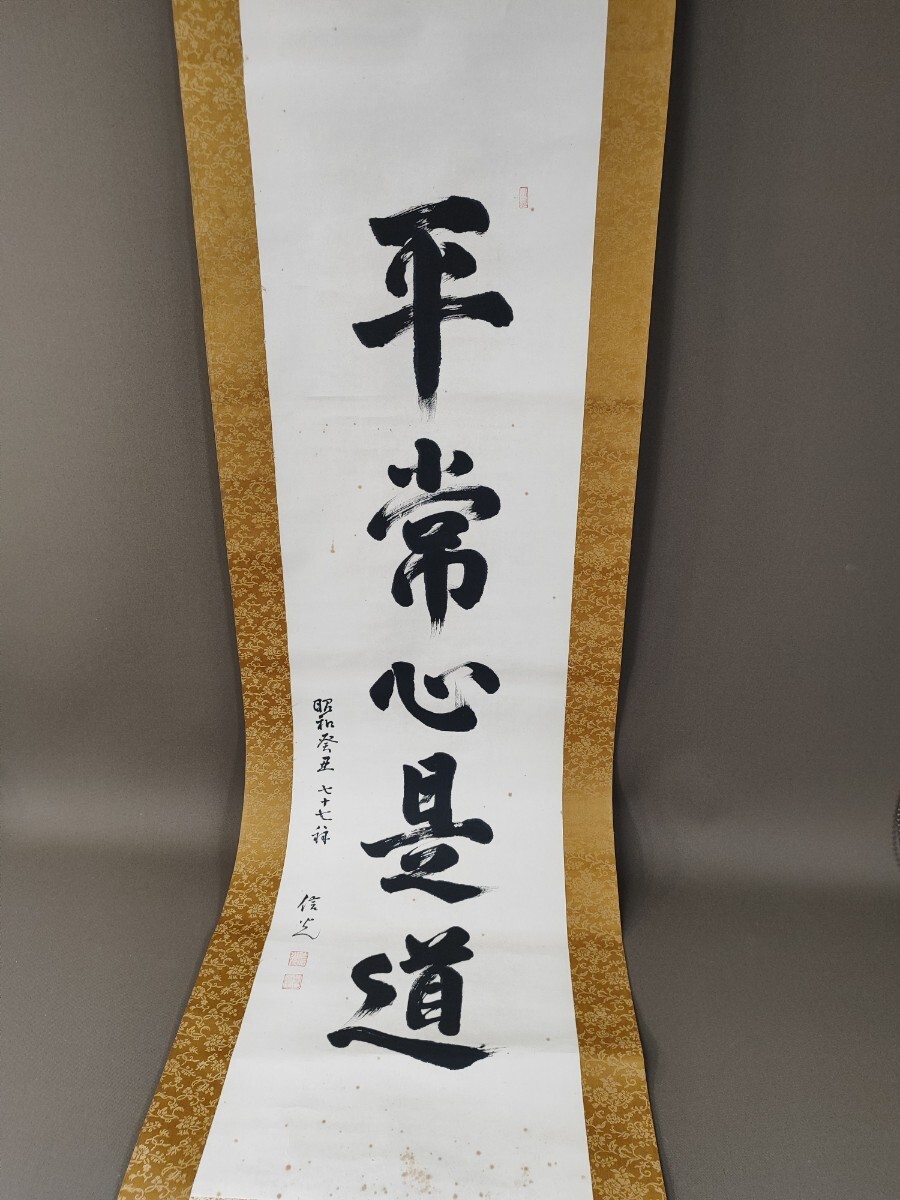 平常心是道
昭和癸丑 七十七稌
信光